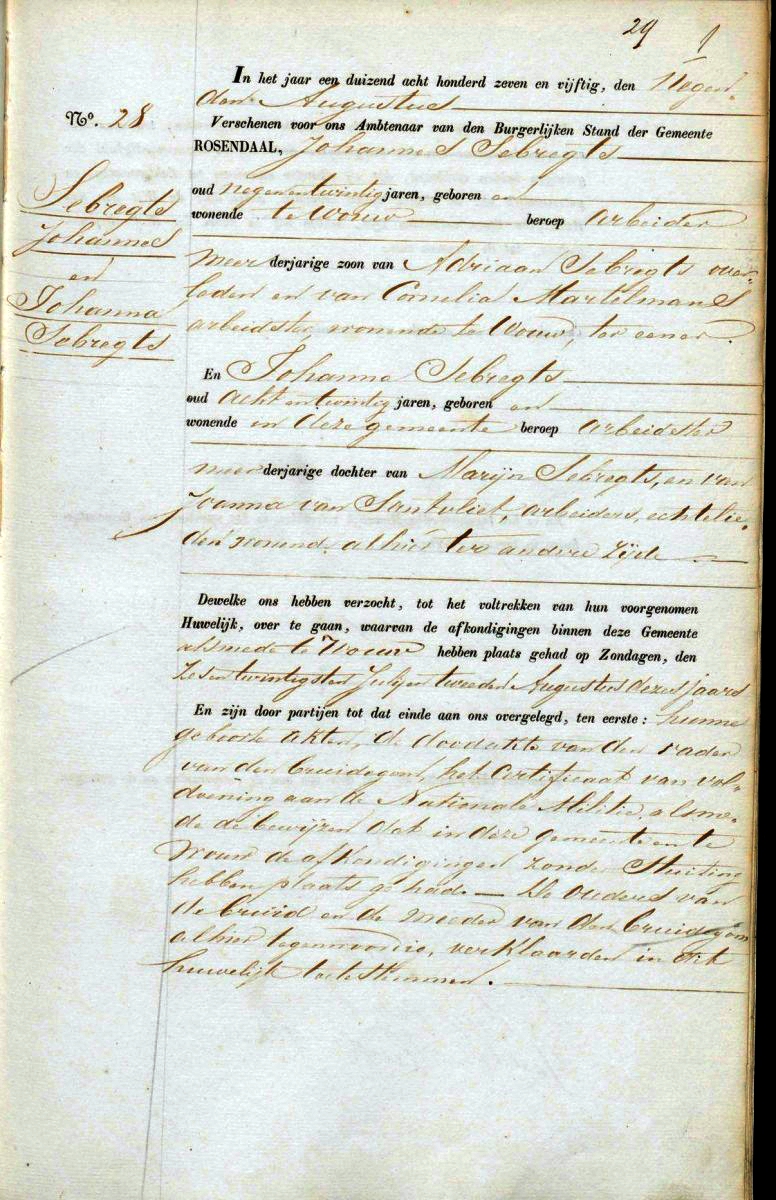 29 1
In het jaar een duizend acht honderd zeven en vijftig, den Negen
den Augustus
No. 28
Verschenen voor ons Ambtenaar van den Burgerlijken Stand der Gemeente
ROSENDAAL, Johannes Sebregts
oud negenentwintig jaren, geboren en
wonende te Wouw beroep arbeider
Sebregts
Johannes
en
Johanna
Sebregts
meer derjarige zoon van Adriaan Sebregts over
leden en van Cornelia Martelmans
arbeidster, wonende te Wouw, ter eener
En Johanna Sebregts
oud achtentwintig jaren, geboren en
wonende in deze gemeente beroep arbeidster
meer derjarige dochter van Marijn Sebregts, en van
Joanna van Santvliet, arbeiders, echtelie
den wonend alhier ter andere zijde
Dewelke ons hebben verzocht, tot het voltrekken van hun voorgenomen
Huwelijk, over te gaan, waarvan de afkondigingen binnen deze Gemeente
alsmede te Wouw hebben plaats gehad op Zondagen, den
zesentwintigsten Julij en tweeden Augustus dezes jaars
En zijn door partijen tot dat einde aan ons overgelegd, ten eerste: hunne
geboorte akten, de doodakte van den vader
van den bruidegom, het certificaat van vol-
doening aan de Nationale Militie, alsme-
de de bewijzen dat in deze gemeente en te
Wouw de afkondigingen zonder stuiting
hebben plaats gehad. — De ouders van
de bruid en de moeder van den bruidegom
alhier tegenwoordig, verklaarden in dit
huwelijk toetestemmen.